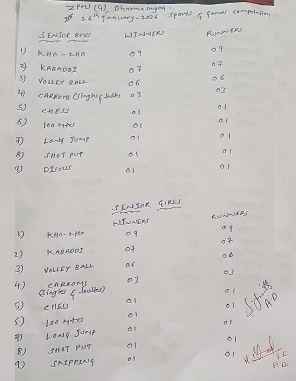 ZPHS (G), Dharmasagar
26th January-2026 Sports & Games Competation
SENIOR BOYS WINNERS RUNNERS
1) KHO-KHO 09 09
2) KABADDI 07 07
3) VOLLEY BALL 06 06
4) CARROMS (Singles & Doubles) 03 03
5) CHESS 01 01
6) 100 Mtrs 01 01
7) LONG JUMP 01 01
8) SHOT PUT 01 01
9) DISCUS 01 01
SENIOR GIRLS
WINNERS RUNNERS
1) KHO-KHO 09 09
2) KABADDI 07 07
3) VOLLEY BALL 06 06
4) CARROMS 03 03
(Singles & Doubles)
5) CHESS 01 01
6) 100 Mtrs 01 01
7) LONG JUMP 01 01
8) SHOT PUT 01 01
9) SKIPPING 01 01